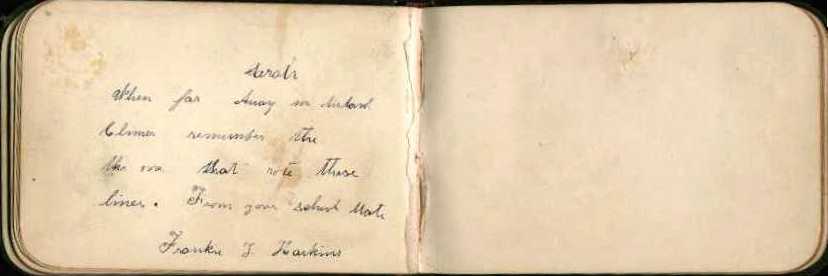 When far Away in distant
Climes remember the
the one that rote these
lines. From your school Mate
Frankie J. Harkins